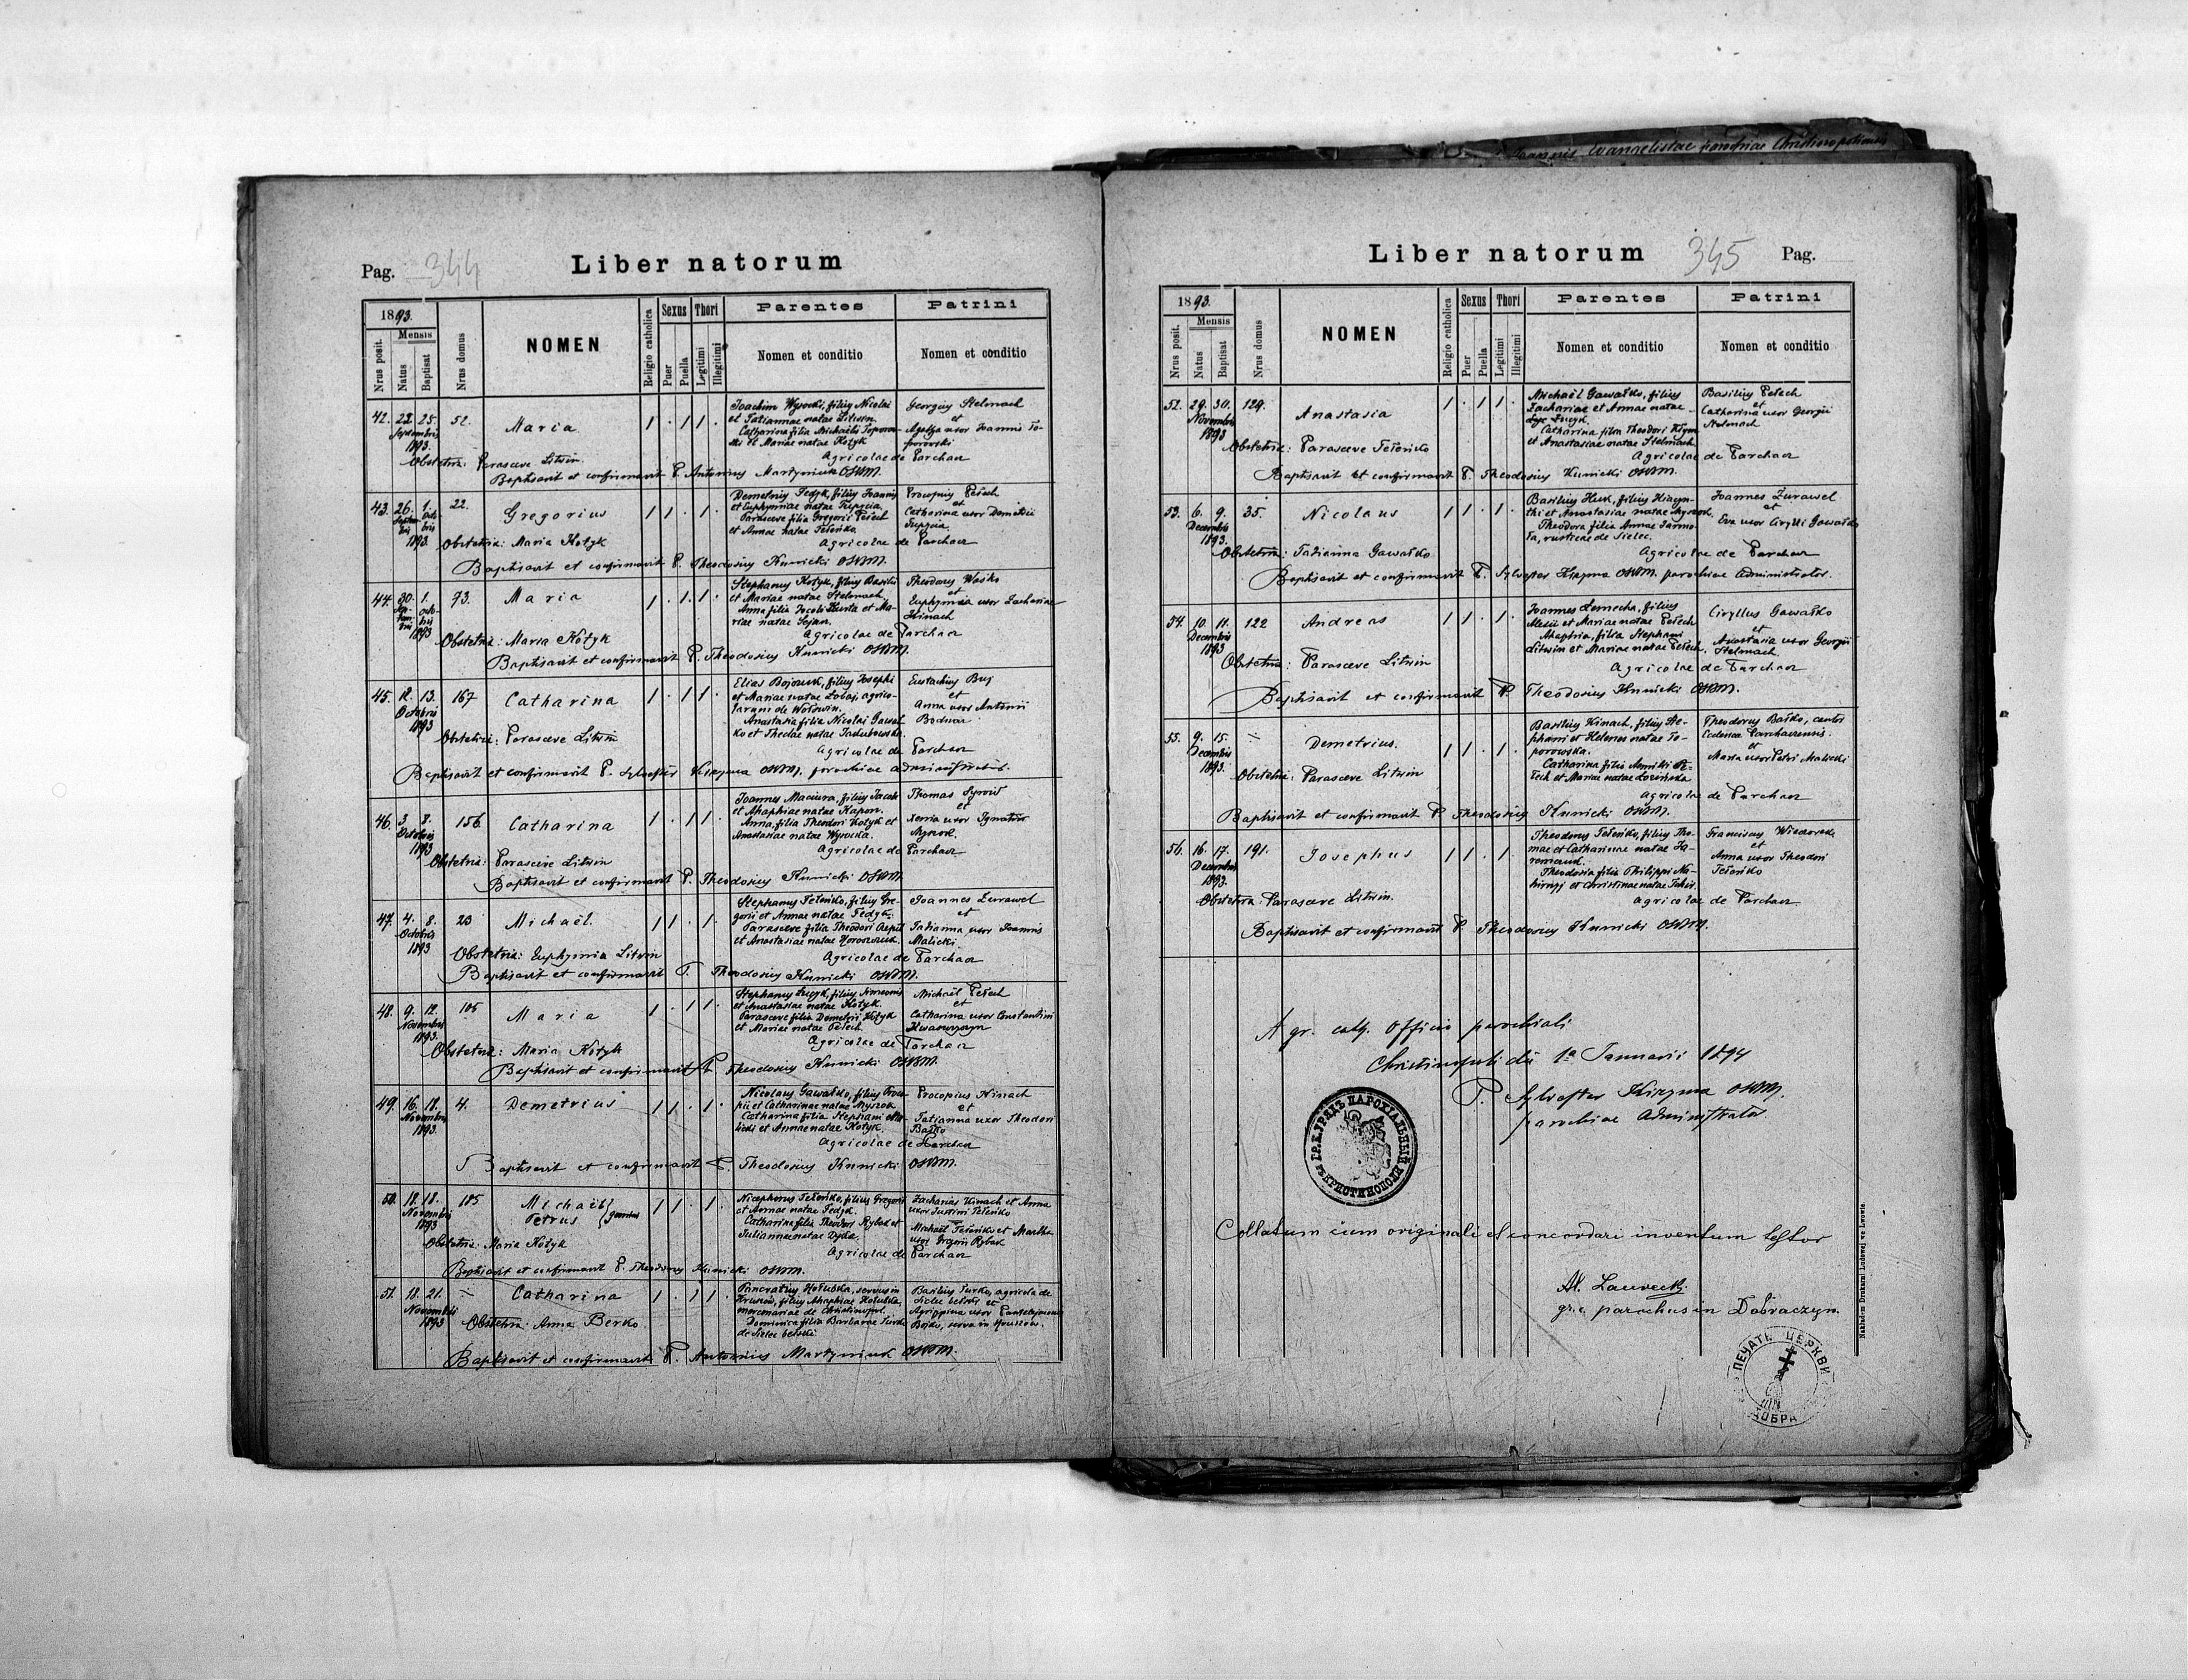 Joannis Evangelistae parochiae Christinopoliensis
Pag. 344 Liber natorum
1893. Nrus domus NOMEN Religio catholica Sexus Thori Parentes Patrini
Nrus posit. Mensis Natus Baptisat Puer Puella Legitimi Illegitimi Nomen et conditio Nomen et conditio
42. 22. 25. 52. Maria 1 . 1 1 . Joachim Wysocki, filius Nicolai Georgius Stelmach
Septembris et Tatiannae natae Litwin. et
1893. Catharina filia Michaëlis Toporowski et Mariae natae Kotyk Agatha uxor Joannis Toporowski
Obstetrix: Parasceve Litwin. Agricolae de Parchacz
Baptisavit et confirmavit P. Antonius Martyniuk OSBM.
43. 26. 1. 22. Gregorius 1 1 . 1 . Demetrius Fedyk, filius Joannis Procopius Petech
Septembris Octobris et Euphymiae natae et
1893. Parasceve filia Gregorii Petech Catharina uxor Demetrii
et Annae natae Teteńko
Obstetrix: Maria Kotyk Agricolae de Parchacz
Baptisavit et confirmavit P. Theodosius Kunicki OSBM.
44. 30. 1. 73. Maria 1 . 1 . 1 . Stephanus Kotyk, filius Basilii Theodorus Wasko
et Mariae natae Stelmach et
1893 Anna filia Jacobi Kurta et Mariae natae Euphymia uxor Zachariae
Kinach
Obstetrix: Maria Kotyk Agricolae de Parchacz
Baptisavit et confirmavit P. Theodosius Kunicki OSBM.
45. 12. 13. 167 Catharina 1 . 1 1 . Elias filius Josephi Eustachius Buj
Octobris et Mariae natae et
1893 de Anna uxor Antonii
Anastasia filia Nicolai Gawałko et Theclae natae Jakubowska. Bodnar
Obstetrix: Parasceve Litwin Agricolae de Parchacz
Baptisavit et confirmavit P. Sylvester Kizyma OSBM. parochiae administrator.
46. 3. 8. 156. Catharina 1 . 1 1 . Joannes Maciura, filius Jacobi Thomas
Octobris et Ahaphiae natae Kapon. et
1893 Anna, filia Theodori Kotyk et Xenia uxor Ignatii
Anastasiae natae Wysocka. Myszok
Obstetrix: Parasceve Litwin Agricolae de Parchacz
Baptisavit et confirmavit P. Theodosius Kunicki OSBM.
47. 4. 8. 23 Michaël. 1 1 . 1 . Stephanus Teteńko, filius Gregorii et Annae natae Fedyk. Joannes Zurawel
Octobris et
1893 Parasceve filia Theodori Tatianna uxor Joannis
et Anastasiae natae Malicki.
Obstetrix: Euphymia Litwin Agricolae de Parchacz
Baptisavit et confirmavit P. Theodosius Kunicki OSBM.
48. 9. 12. 105 Maria 1 . 1 1 . Stephanus filius Simeonis Michaël Petech
Novembris et Anastasiae natae Kotyk. et
1893. Parasceve filia Demetrii Kotyk Catharina uxor Constantini
et Mariae natae Petech.
Obstetrix: Maria Kotyk Agricolae de Parchacz
Baptisavit et confirmavit P. Theodosius Kunicki OSBM.
49. 16. 18. 4. Demetrius 1 1 . 1 . Nicolaus Gawałko, filius Procopii et Catharinae natae Myszok Procopius Kinach
Novembris et
1893. Catharina filia Stephani Malicki et Annae natae Kotyk. Tatianna uxor Theodori
Baśko
Agricolae de Parchacz
Baptisavit et confirmavit P. Theodosius Kunicki OSBM.
50. 18. 18. 185 Michaël Petrus gemini 1 1 . 1 . Nicephorus Teteńko, filius Gregorii Zacharias Kinach et Anna
Novembris et Annae natae Fedyk. uxor Justini Teteńko
1893 Catharina filia Theodori Rybak et Michaël Teteńko et Martha
Juliannae natae Dyda. uxor Gregorii Rybak
Obstetrix: Maria Kotyk Agricolae de Parchacz
Baptisavit et confirmavit P. Theodosius Kunicki OSBM.
51. 18. 21. Catharina 1 . 1 1 . Pancratius Hołubka, servus in Basilius Turko, agricola de
Novembris filius Ahaphiae Hołubka, Sielec et
1893 mercenariae de Christinopol. Agrippina uxor
Dominica filia Barbarae Turko Bojko, serva in
Obstetrix: Anna Berko de Sielec
Baptisavit et confirmavit P. Antonius Martyniuk OSBM.
Liber natorum 345 Pag.
1893. Nrus domus NOMEN Religio catholica Sexus Thori Parentes Patrini
Nrus posit. Mensis Natus Baptisat Puer Puella Legitimi Illegitimi Nomen et conditio Nomen et conditio
52. 29. 30. 129. Anastasia 1 . 1 1 . Michaël Gawałko, filius Basilius Petech
Novembris Zachariae et Annae natae et
1893 Catharina filia Theodori Catharina uxor Georgii
et Anastasiae natae Stelmach Stelmach
Obstetrix: Parasceve Teteńko Agricolae de Parchacz
Baptisavit et confirmavit P. Theodosius Kunicki OSBM.
53. 6. 9. 35. Nicolaus 1 1 . 1 . Basilius Huk, filius Hiacynthi et Anastasiae natae Myszok. Joannes Zurawel
Decembris et
1893. Theodora filia Annae rusticae de Sielec. Eva uxor Cirylli Gawałko
Obstetrix: Tatianna Gawałko Agricolae de Parchacz
Baptisavit et confirmavit P. Sylvester Kizyma OSBM. parochiae administrator.
54. 10. 11. 122 Andreas 1 1 . 1 . Joannes Lemecha, filius Ciryllus Gawałko
Decembris Alexii et Mariae natae Petech et
1893 Ahaphia, filia Stephani Anastasia uxor Georgii
Litwin et Mariae natae Petech. Stelmach
Obstetrix: Parasceve Litwin Agricolae de Parchacz
Baptisavit et confirmavit P. Theodosius Kunicki OSBM.
55. 9. 15. Demetrius. 1 1 . 1 . Basilius Kinach, filius Stephani et Helenae natae Toporowska. Theodorus Baśko, cantor
Decembris ecclesiae Parchaczensis.
1893. et
Catharina filia Petech et Mariae natae Łozińska Maria uxor Petri Malicki
Obstetrix: Parasceve Litwin Agricolae de Parchacz
Baptisavit et confirmavit P. Theodosius Kunicki OSBM.
56. 16. 17. 191. Josephus 1 1 . 1 . Theodorus Teteńko, filius Thomae et Catharinae natae Franciscus
Decembris et
1893. Theodosia filia Philippi et Christinae natae Anna uxor Theodori
Teteńko
Obstetrix: Parasceve Litwin. Agricolae de Parchacz
Baptisavit et confirmavit P. Theodosius Kunicki OSBM.
A gr. cath. officio parochiali
Christinopoli die 1a Januarii 1894
P. Sylvester Kizyma OSBM.
parochiae administrator
ГР.К.УРЯДЪ ПАРОХІАЛЬНЫЙ ВЪ КРИСТИНОПОЛИ
Collatum cum originali et concordare inventum testor
Al. Laurecki
gr. c. parochus in Dobraczyn
ПЕЧАТЬ ЦЕРКВИ
ДОБРА
Nakładem Drukarni Ludowej we Lwowie.